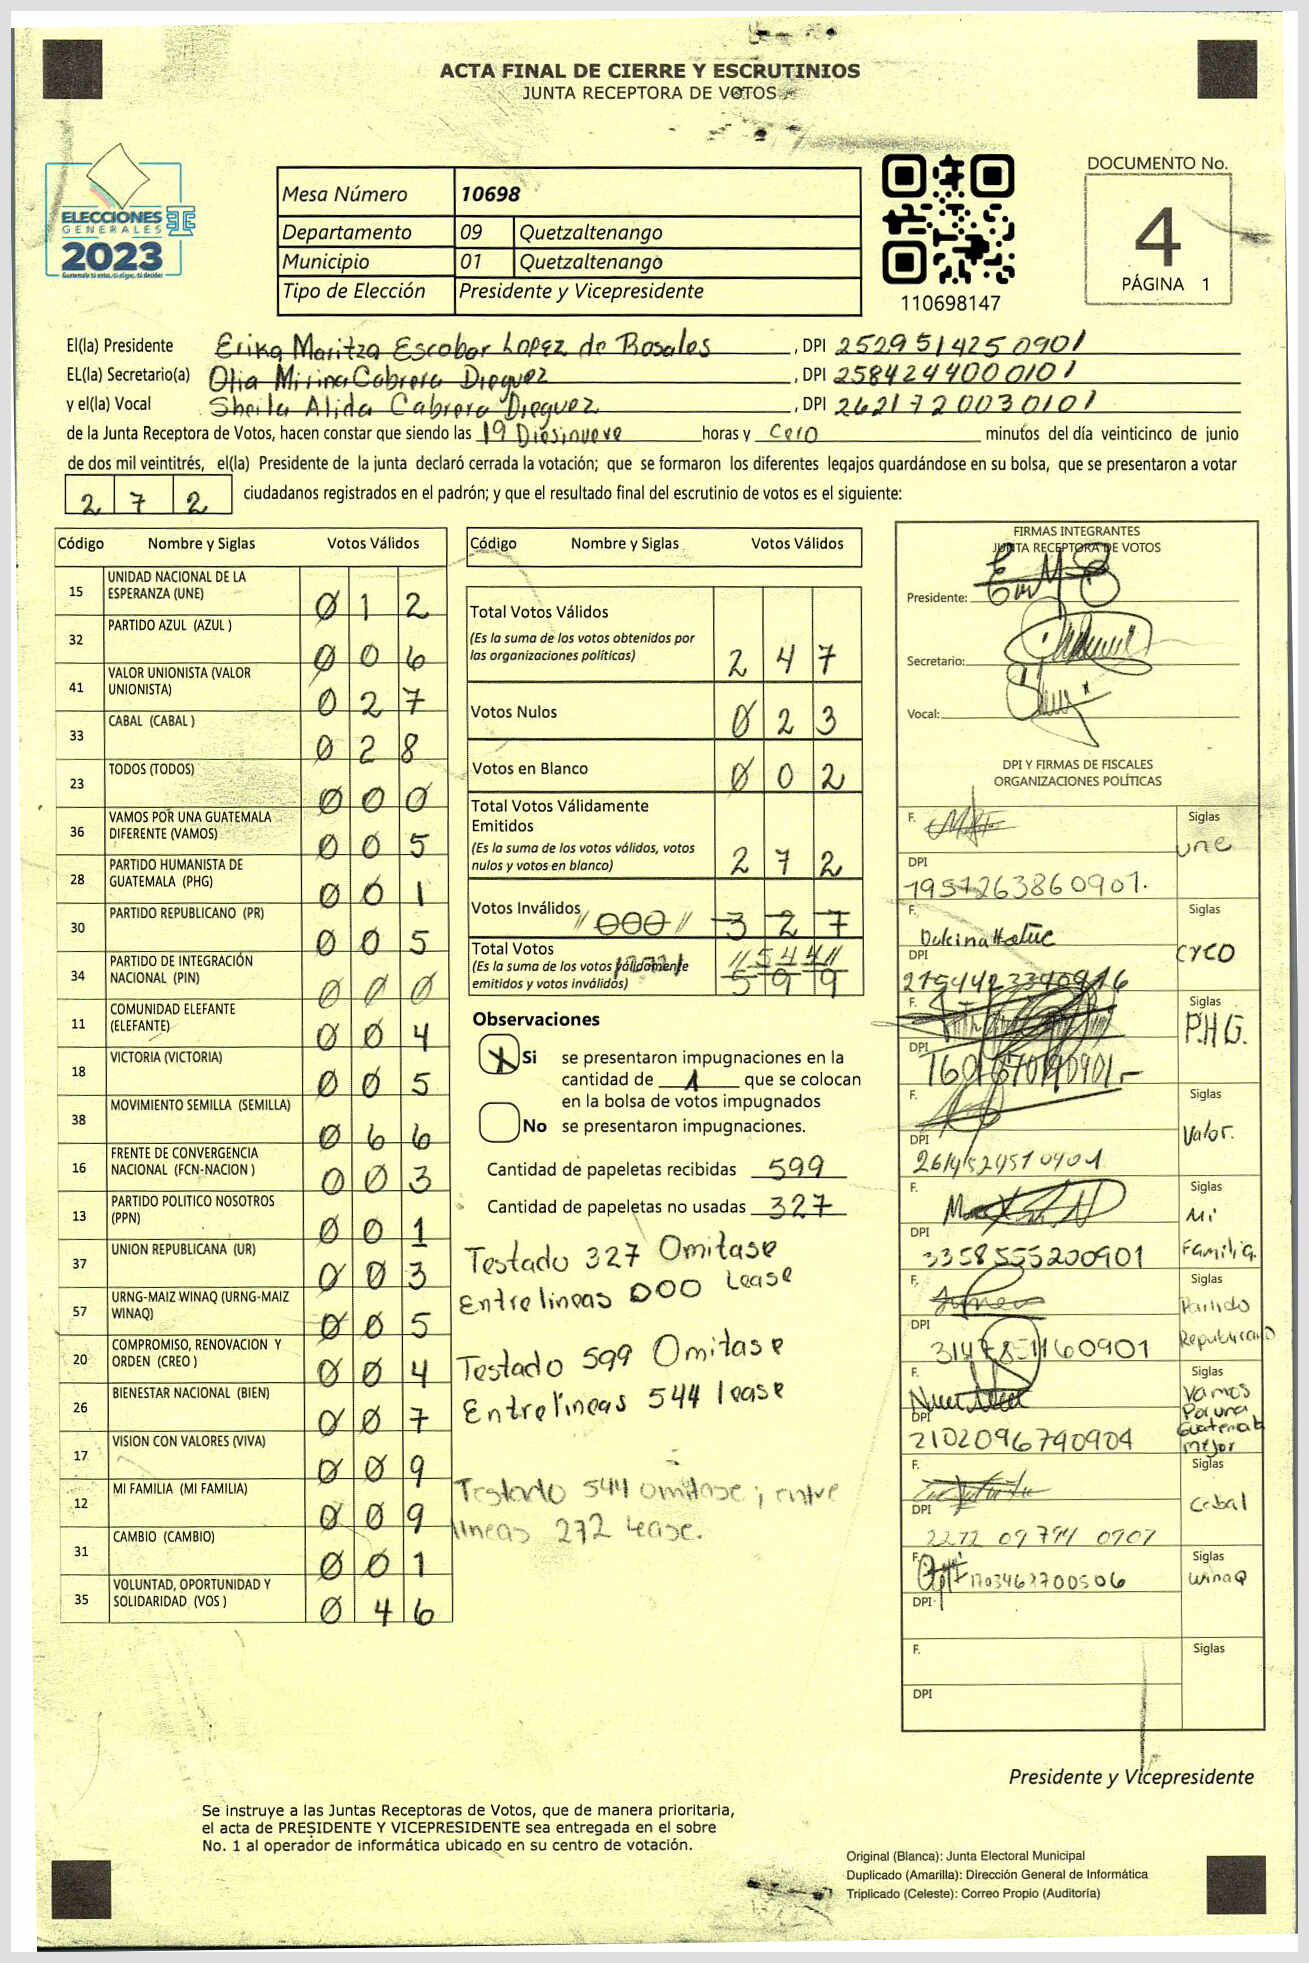 ACTA FINAL DE CIERRE Y ESCRUTINIOS
JUNTA RECEPTORA DE VOTOS
ELECCIONES
GENERALES
2023
Mesa Número 10698
Departamento 09 Quetzaltenango
Municipio 01 Quetzaltenango
Tipo de Elección Presidente y Vicepresidente
110698147
DOCUMENTO No.
4
PÁGINA 1
El(la) Presidente Erika Maritza Escobar Lopez de Rosales, DPI 2529514250901
EL(la) Secretario(a) Cabrera Dieguez, DPI 2584244000101
y el(la) Vocal Sheila Alida Cabrera Dieguez, DPI 2621720030101
de la Junta Receptora de Votos, hacen constar que siendo las 19 Diesinueve horas y cero minutos del día veinticinco de junio
de dos mil veintitrés, el(la) Presidente de la junta declaró cerrada la votación; que se formaron los diferentes legajos guardándose en su bolsa, que se presentaron a votar
2 7 2 ciudadanos registrados en el padrón; y que el resultado final del escrutinio de votos es el siguiente:
Código Nombre y Siglas Votos Válidos
15 UNIDAD NACIONAL DE LA ESPERANZA (UNE) 0 1 2
32 PARTIDO AZUL (AZUL ) 0 0 6
41 VALOR UNIONISTA (VALOR UNIONISTA) 0 2 7
33 CABAL (CABAL ) 0 2 8
23 TODOS (TODOS) 0 0 0
36 VAMOS POR UNA GUATEMALA DIFERENTE (VAMOS) 0 0 5
28 PARTIDO HUMANISTA DE GUATEMALA (PHG) 0 0 1
30 PARTIDO REPUBLICANO (PR) 0 0 5
34 PARTIDO DE INTEGRACIÓN NACIONAL (PIN) 0 0 0
11 COMUNIDAD ELEFANTE (ELEFANTE) 0 0 4
18 VICTORIA (VICTORIA) 0 0 5
38 MOVIMIENTO SEMILLA (SEMILLA) 0 6 6
16 FRENTE DE CONVERGENCIA NACIONAL (FCN-NACION ) 0 0 3
13 PARTIDO POLITICO NOSOTROS (PPN) 0 0 1
37 UNION REPUBLICANA (UR) 0 0 3
57 URNG-MAIZ WINAQ (URNG-MAIZ WINAQ) 0 0 5
20 COMPROMISO, RENOVACION Y ORDEN (CREO ) 0 0 4
26 BIENESTAR NACIONAL (BIEN) 0 0 7
17 VISION CON VALORES (VIVA) 0 0 9
12 MI FAMILIA (MI FAMILIA) 0 0 9
31 CAMBIO (CAMBIO) 0 0 1
35 VOLUNTAD, OPORTUNIDAD Y SOLIDARIDAD (VOS ) 0 4 6
Código Nombre y Siglas Votos Válidos
Total Votos Válidos
(Es la suma de los votos obtenidos por
las organizaciones políticas) 2 4 7
Votos Nulos 0 2 3
Votos en Blanco 0 0 2
Total Votos Válidamente
Emitidos
(Es la suma de los votos válidos, votos
nulos y votos en blanco) 2 7 2
Votos Inválidos // 000 // 3 2 7
Total Votos // 5 4 4 //
(Es la suma de los votos válidamente
emitidos y votos inválidos) 5 9 9
Observaciones
X Si se presentaron impugnaciones en la
cantidad de 1 que se colocan
en la bolsa de votos impugnados
No se presentaron impugnaciones.
Cantidad de papeletas recibidas 599
Cantidad de papeletas no usadas 327
Testado 327 Omitase
Entrelineas 000 Lease
Testado 599 Omitase
Entrelineas 544 lease
Testado 544 omitase; entre
lineas 272 Lease.
FIRMAS INTEGRANTES
JUNTA RECEPTORA DE VOTOS
Presidente:
Secretario:
Vocal:
DPI Y FIRMAS DE FISCALES
ORGANIZACIONES POLÍTICAS
F. Siglas
une
DPI
1951263860901.
F. Siglas
DPI
creo
F. Siglas
P.H.G.
DPI
F. Siglas
DPI Valor.
F. Siglas
Mi
DPI
Familia.
3358555200901
F. Siglas
Partido
DPI
Republicano
3147851160901
F. Siglas
Vamos
DPI Por una
2102096740904 Guatemala
mejor
F. Siglas
Cabal
DPI
F. Siglas
1703462700506 winaq
DPI
F. Siglas
DPI
Presidente y Vicepresidente
Se instruye a las Juntas Receptoras de Votos, que de manera prioritaria,
el acta de PRESIDENTE Y VICEPRESIDENTE sea entregada en el sobre
No. 1 al operador de informática ubicado en su centro de votación.
Original (Blanca): Junta Electoral Municipal
Duplicado (Amarilla): Dirección General de Informática
Triplicado (Celeste): Correo Propio (Auditoría)